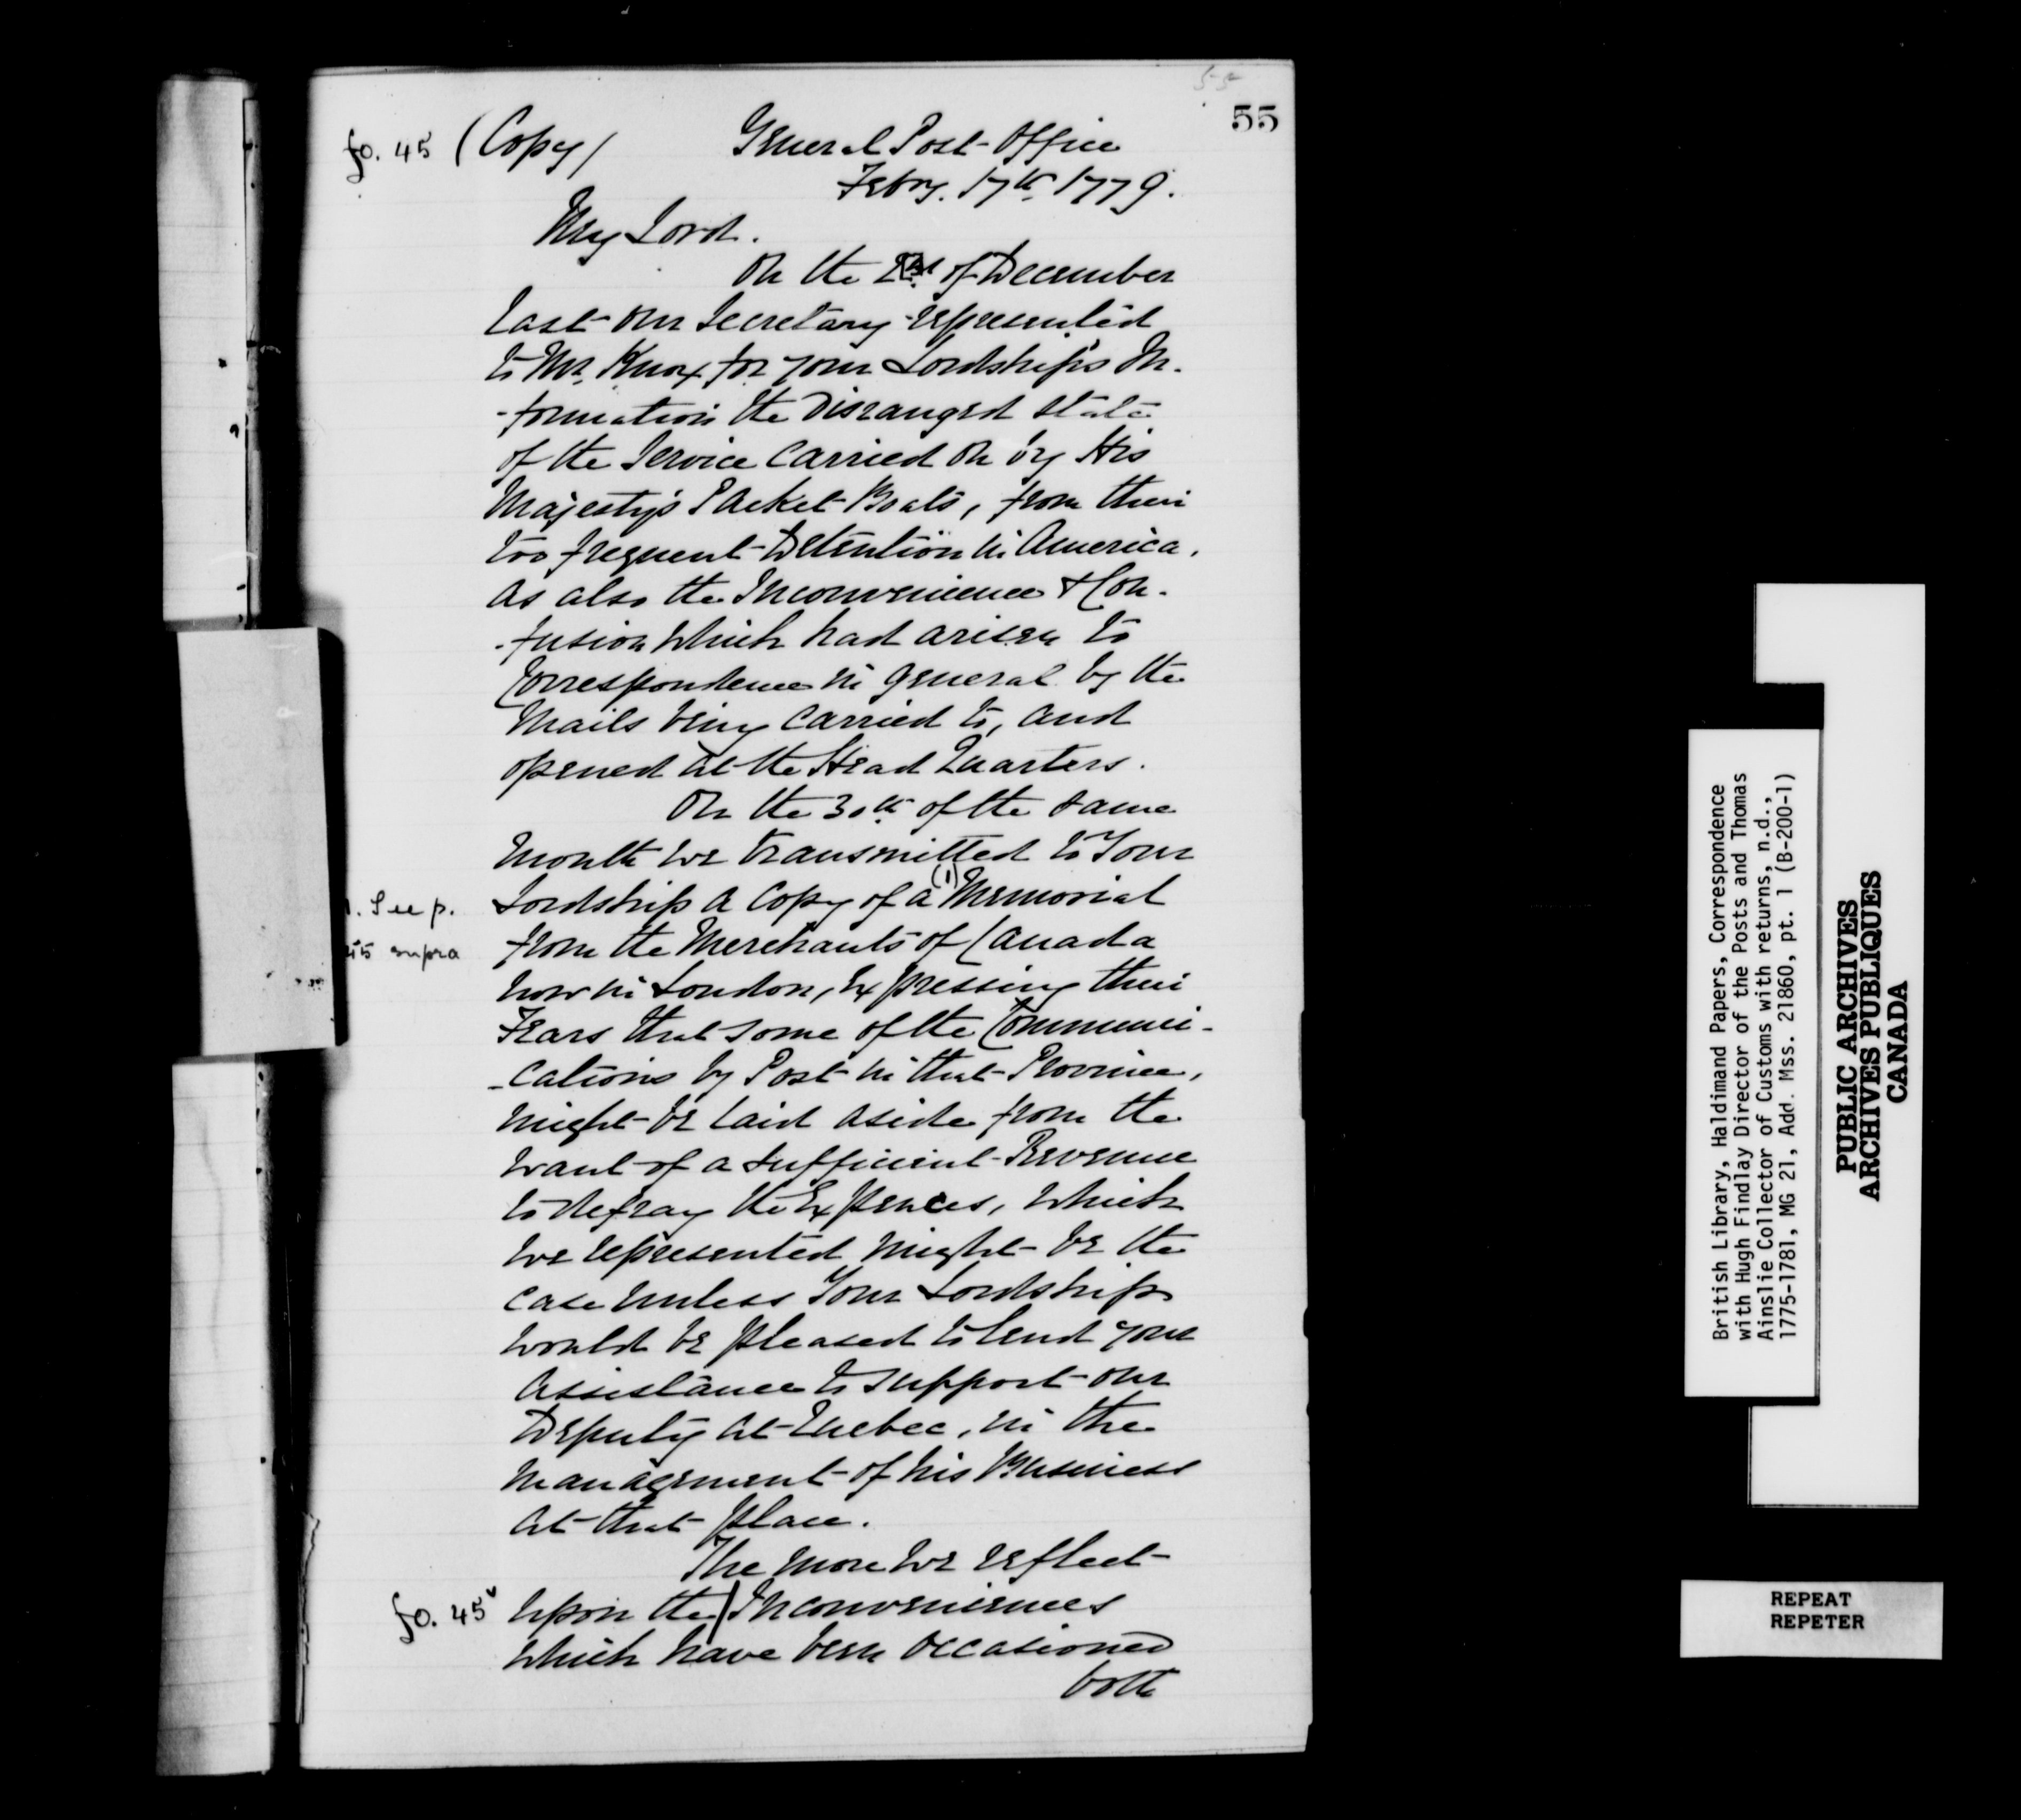 55
55
fo. 45 (Copy) General Post-Office
Febry. 17th 1779.
My Lord.
On the 2nd of December
last our Secretary represented
to Mr. Knox for your Lordship's In-
-formation the Disranged state
of the Service carried on by His
Majesty's Packet Boats, from their
too frequent Detention in America.
As also the Inconvenience & Con-
-fusion which had arisen to
Correspondence in general by the
Mails being carried to, and
opened at the Head Quarters.
On the 30th of the same
Month we transmitted to Your
Lordship a Copy of a (1) Memorial
1. See p.
45 supra
from the Merchants of Canada
now in London, Expressing their
Fears that some of the Communi-
-cations by Post in that Province,
might be laid aside from the
want of a sufficient Revenue
to defray the Expences, which
we represented might be the
case unless Your Lordship
would be pleased to lend your
Assistance to support our
Deputy at Quebec, in the
management of his Business
at that place.
The more we reflect
fo. 45v upon the | Inconveniences
which have been occasioned
both
British Library, Haldimand Papers, Correspondence
with Hugh Findlay Director of the Posts and Thomas
Ainslie Collector of Customs with returns, n.d.,
1775-1781, MG 21, Add. Mss. 21860, pt. 1 (B-200-1)
PUBLIC ARCHIVES
ARCHIVES PUBLIQUES
CANADA
REPEAT
REPETER